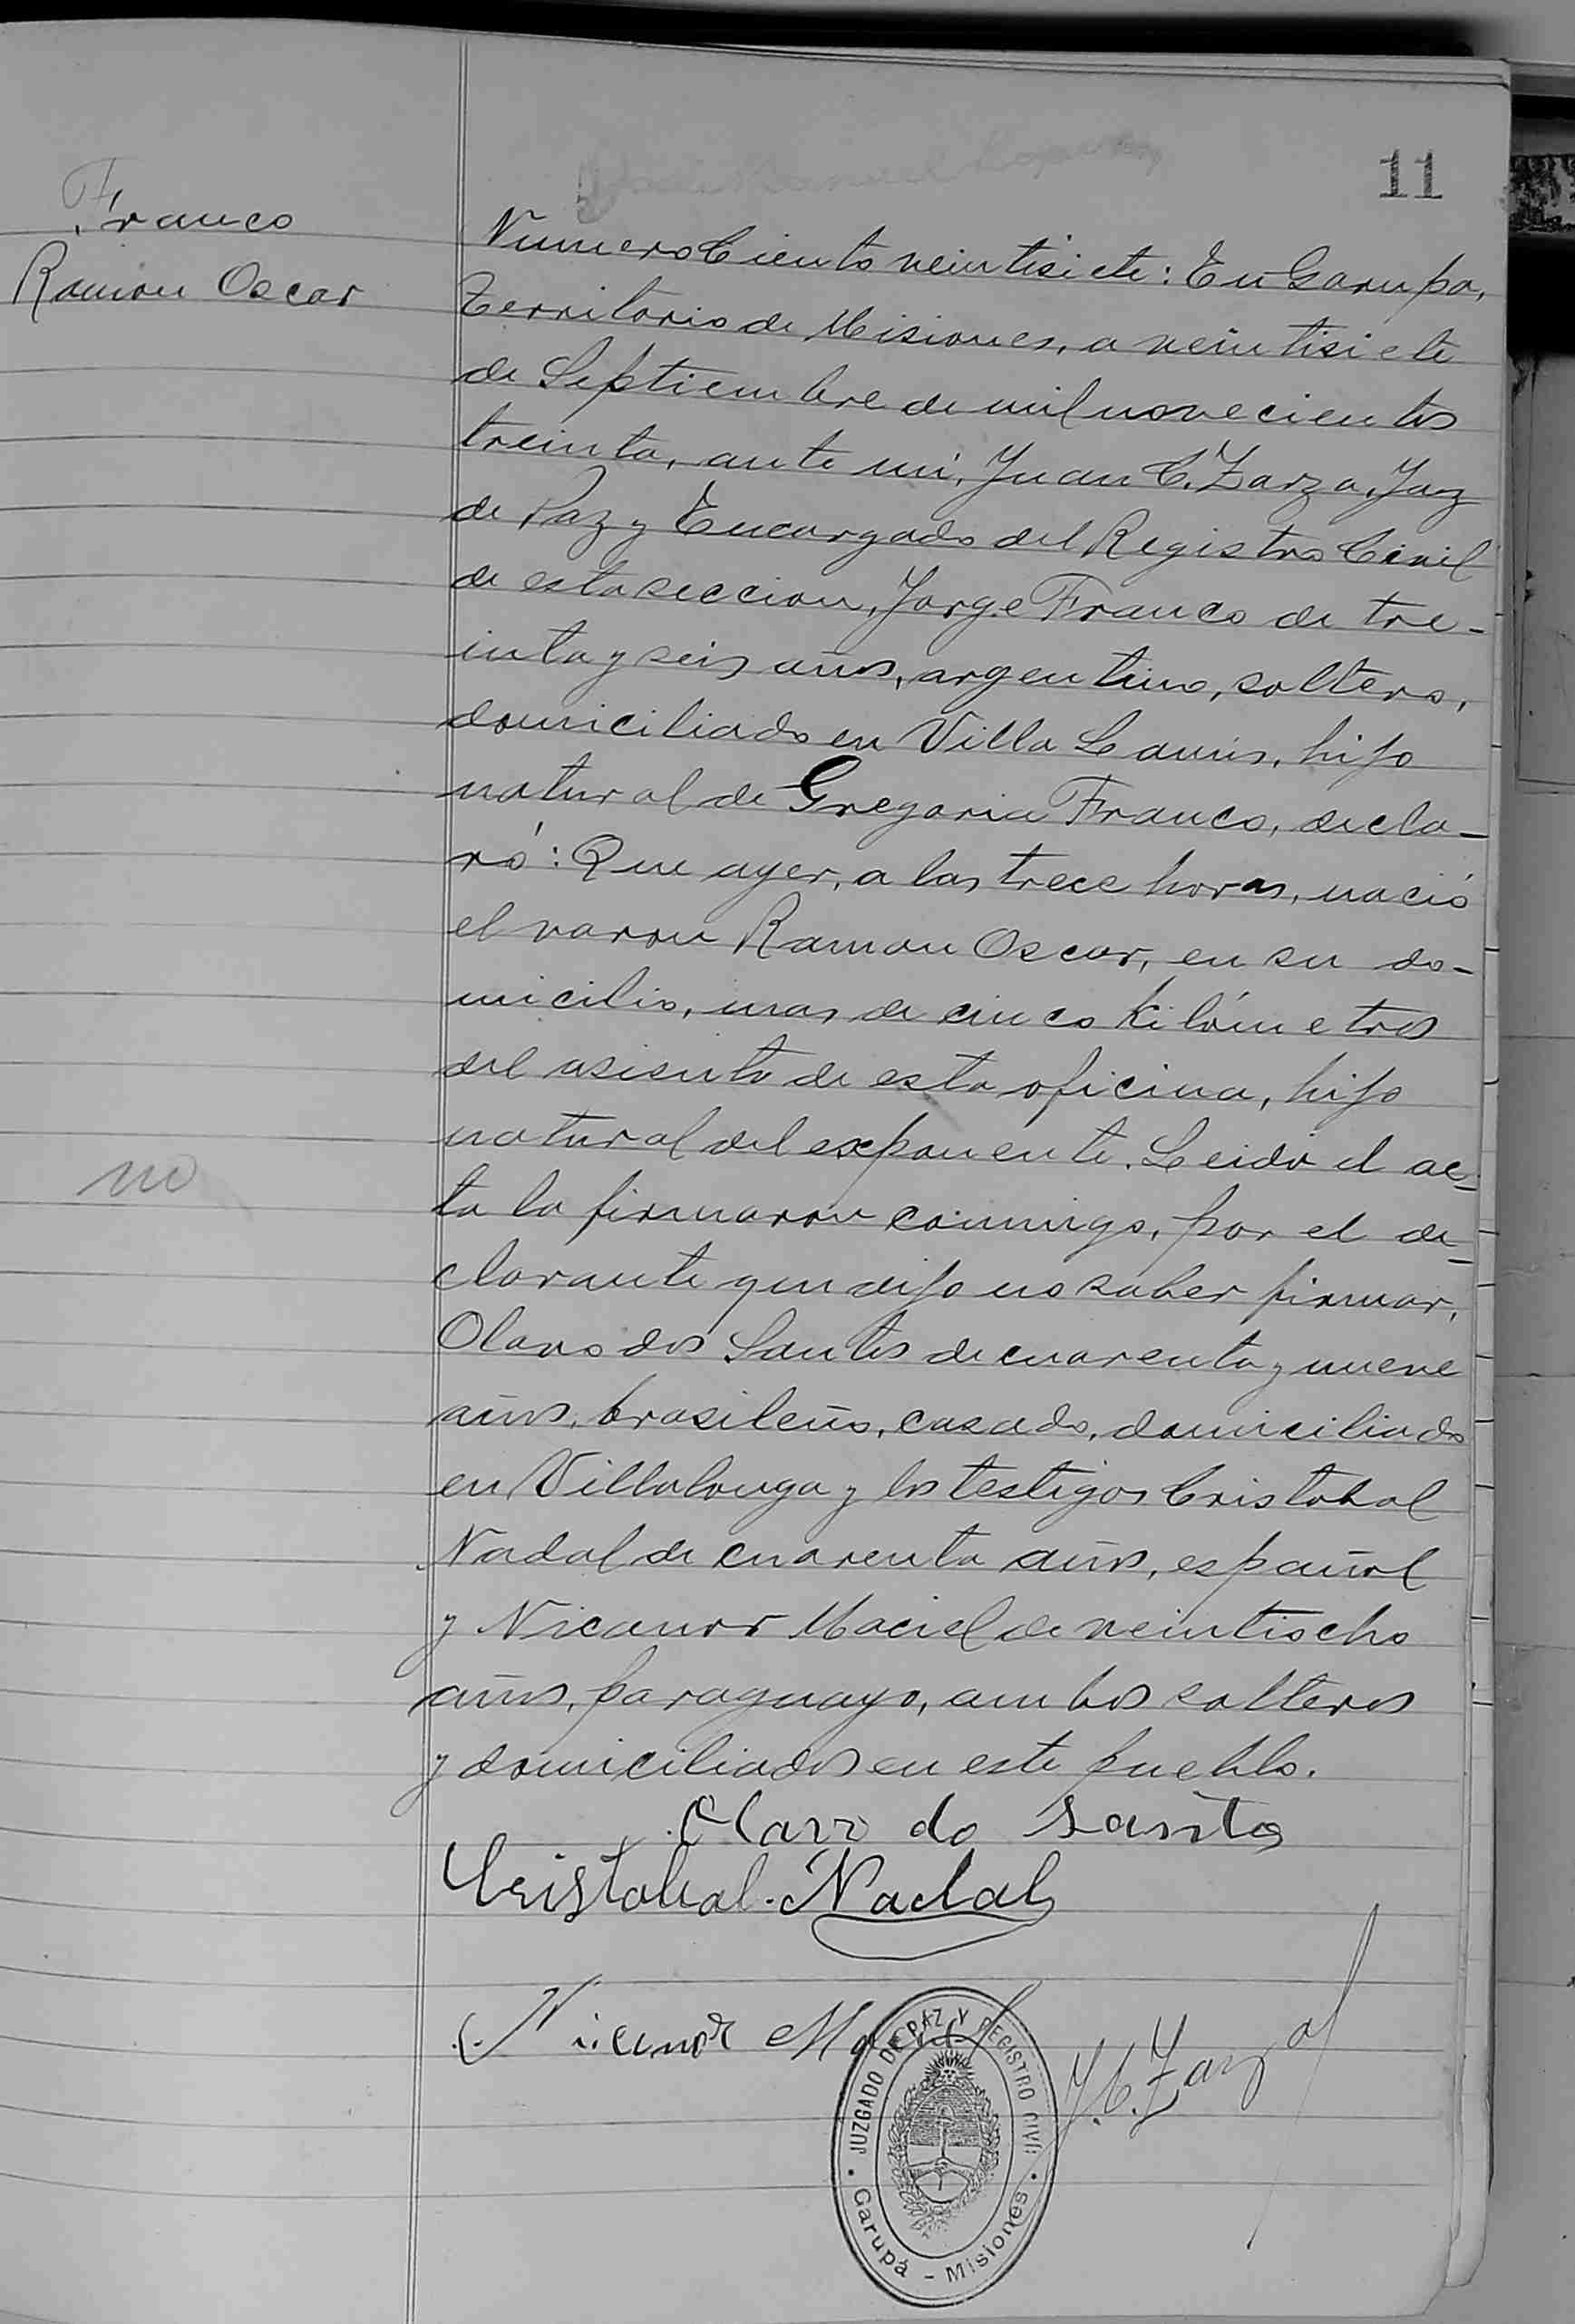 11
Franco
Ramon Oscar
Numero Ciento veintisiete: En Garupa,
Territorio de Misiones, a veintisiete
de Septiembre de mil novecientos
treinta, ante mi, Juan C. Zarza, Juez
de Paz y Encargado del Registro Civil
de esta seccion, Jorge Franco de tre-
inta y seis años, argentino, soltero,
domiciliado en Villa Lanús, hijo
natural de Gregoria Franco, decla-
ró: Que ayer, a las trece horas, nació
el varon Ramon Oscar, en su do-
micilio, mas de cinco kilómetros
del asiento de esta oficina, hijo
natural del exponente. Leido el ac-
ta la firmaron conmigo, por el de-
clarante que dijo no saber firmar,
Olavo dos Santos de cuarenta y nueve
años, brasileño, casado, domiciliado
en Villalonga y los testigos Cristobal
Nadal de cuarenta años, español
y Nicanor Maciel de veintiocho
años, paraguayo, ambos solteros
y domiciliados en este pueblo.
no
Olavo do Santos
Cristobal Nadal
Nicanor Maciel
J. C. Zarza
JUZGADO DE PAZ Y REGISTRO CIVIL
Garupá - Misiones